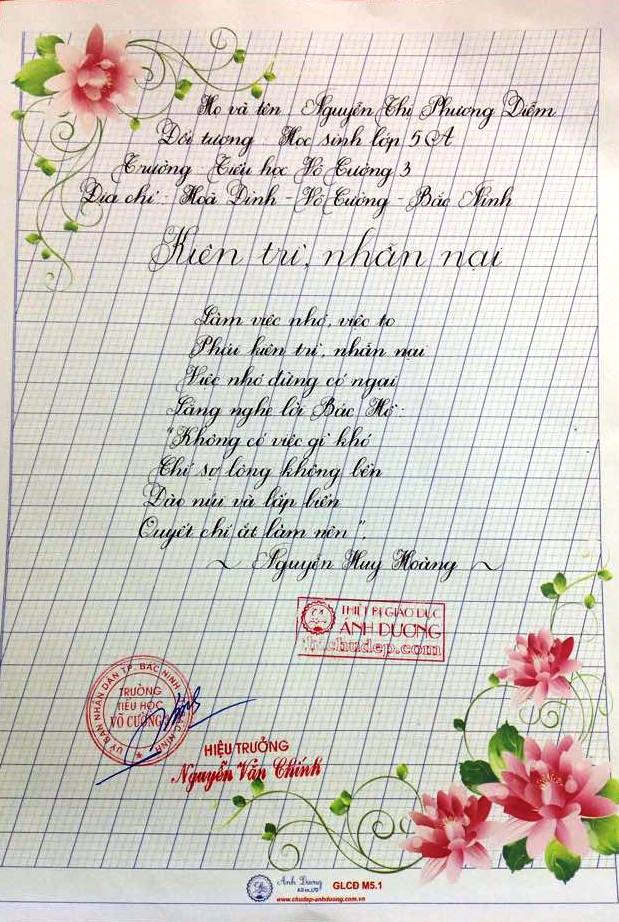 Họ và tên : Nguyễn Thị Phương Diễm
Đối tượng : Học sinh lớp 5A
Trường : Tiểu học Võ Cường 3
Địa chỉ : Hoà Đình - Võ Cường - Bắc Ninh
Kiên trì, nhẫn nại
Làm việc nhỏ, việc to
Phải kiên trì, nhẫn nại
Việc nhỏ đừng có ngại
Lắng nghe lời Bác Hồ :
"Không có việc gì khó
Chỉ sợ lòng không bền
Đào núi và lấp biển
Quyết chí ắt làm nên".
~ Nguyễn Huy Hoàng ~
THIẾT BỊ GIÁO DỤC
ÁNH DƯƠNG
chudep.com
ỦY BAN NHÂN DÂN TP. BẮC NINH
TRƯỜNG
TIỂU HỌC
VÕ CƯỜNG
HIỆU TRƯỞNG
Nguyễn Văn Chính
Ánh Dương
GLCĐ M5.1
www.chudep-anhduong.com.vn